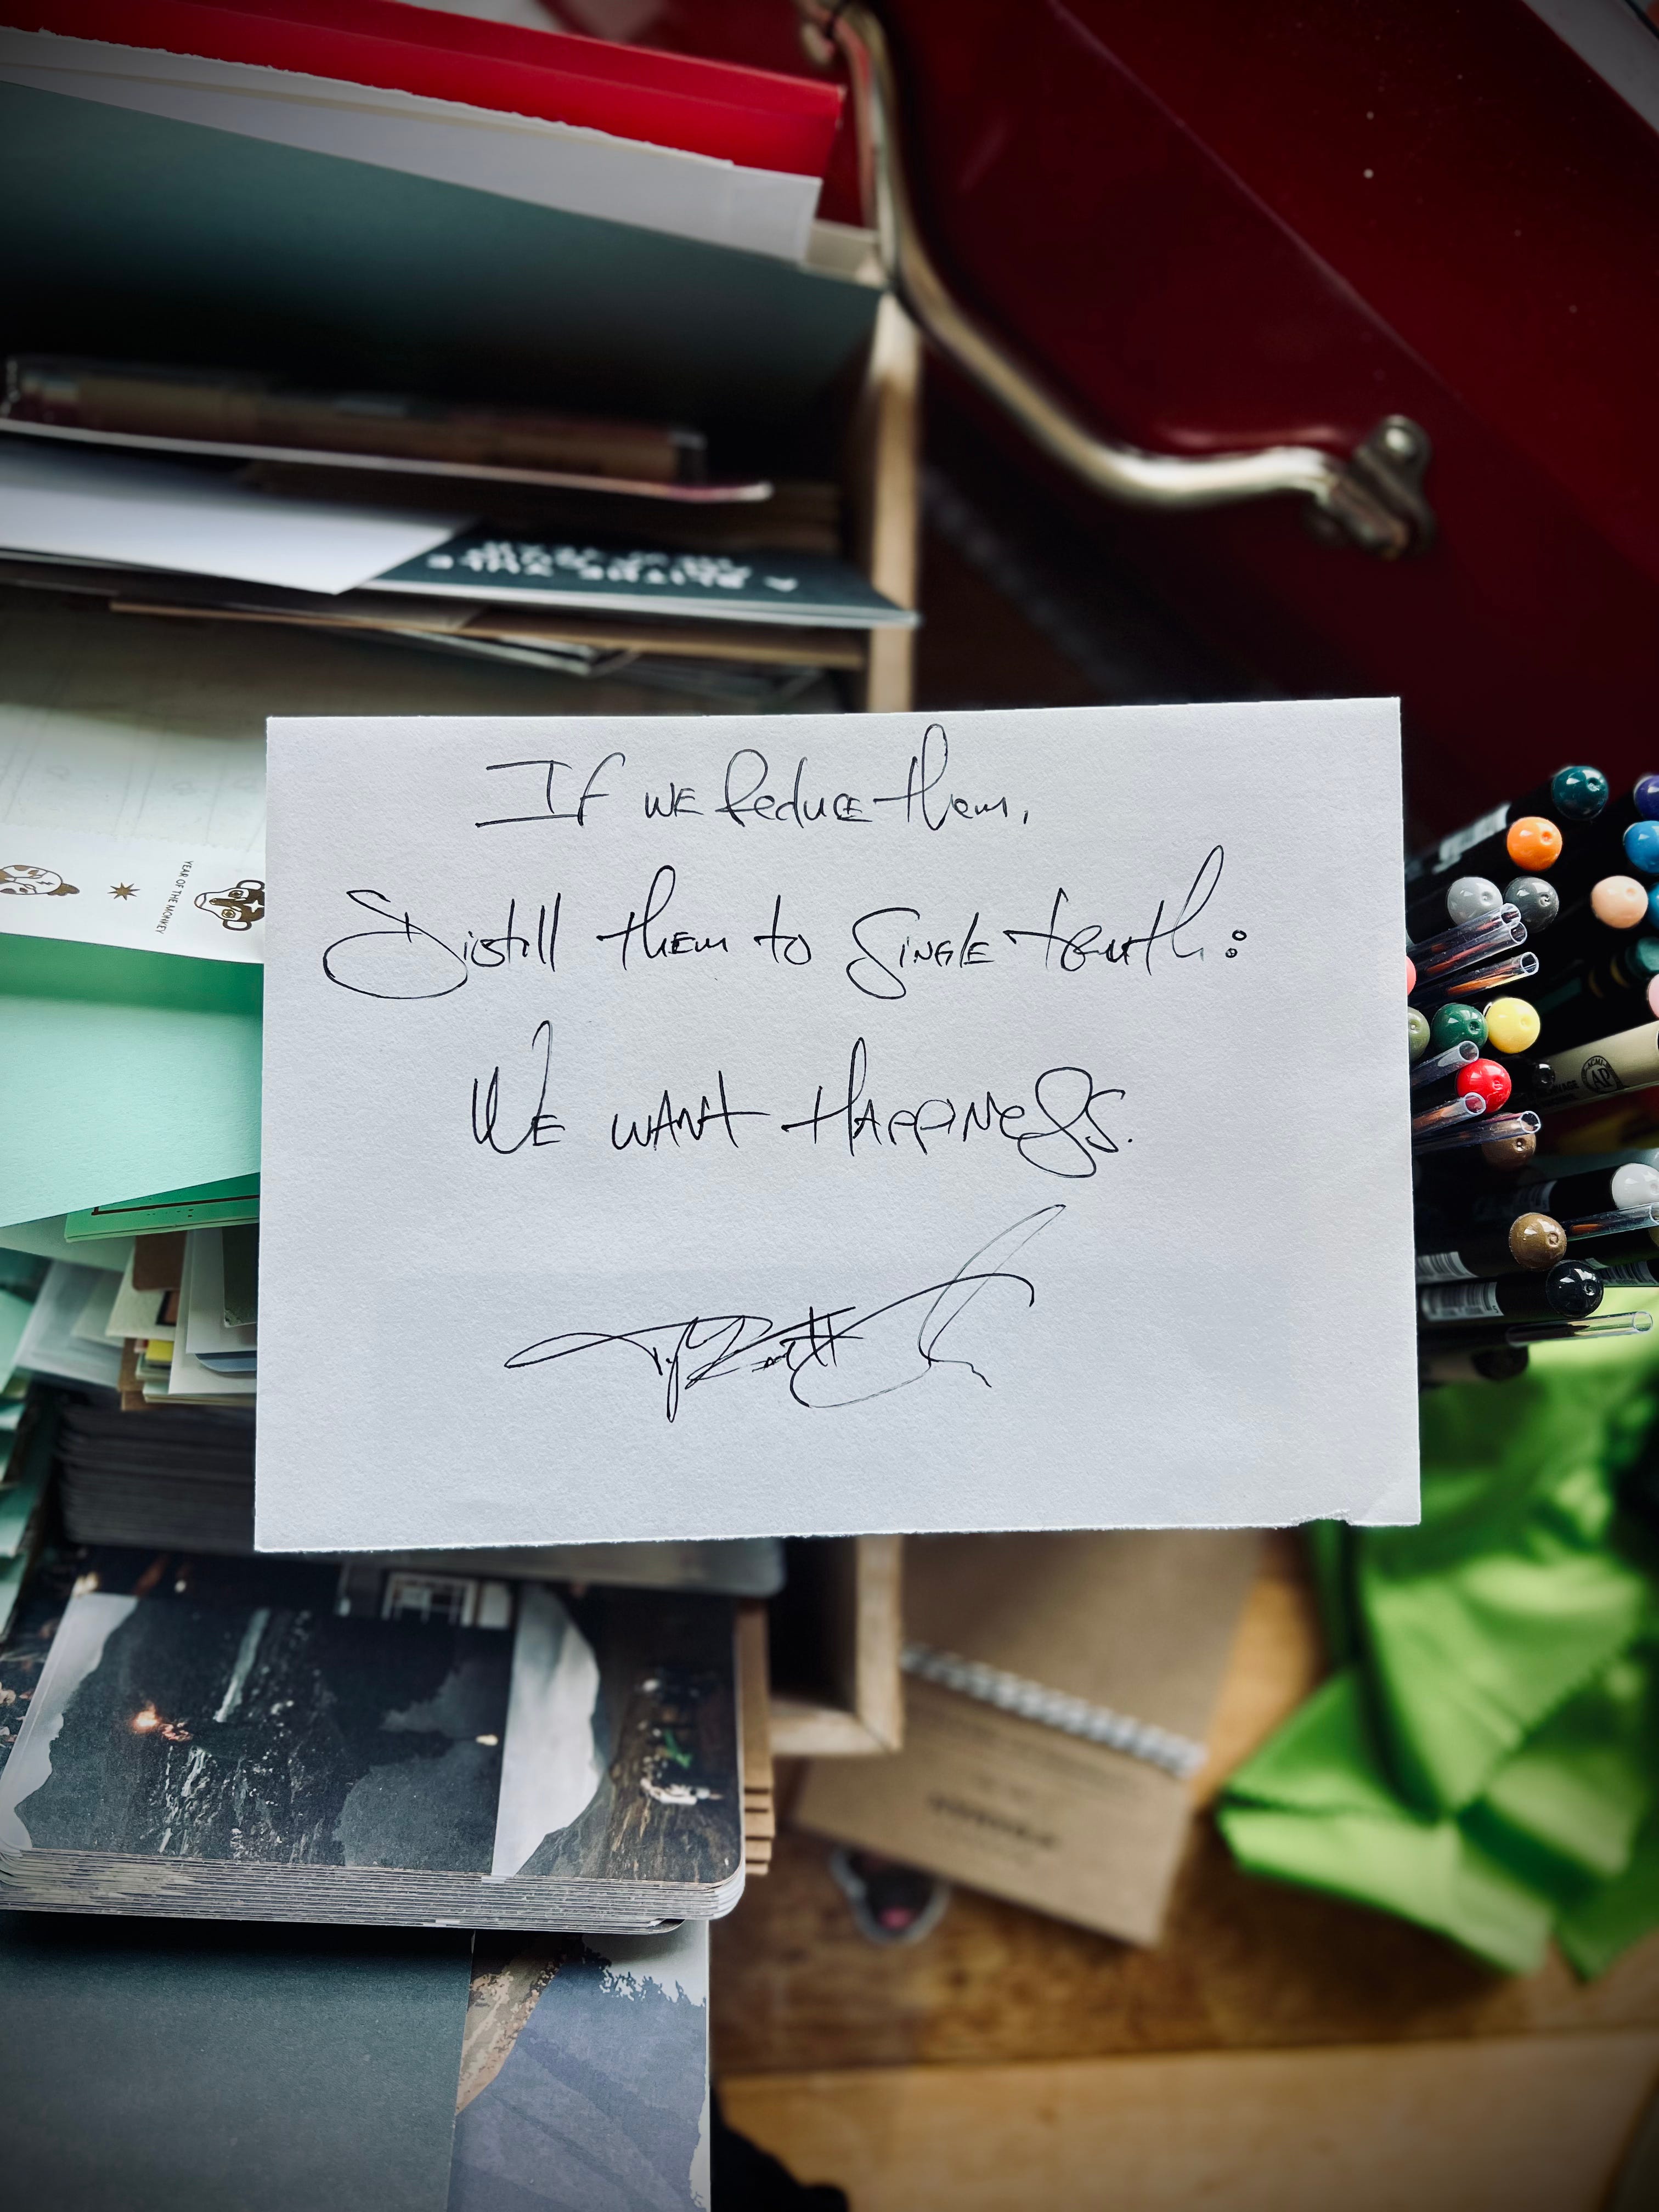 A BLITHE YULE
YEAR OF THE MONKEY
If we Reduce them,
Distill them to Single truth:
We want Happiness.
AP